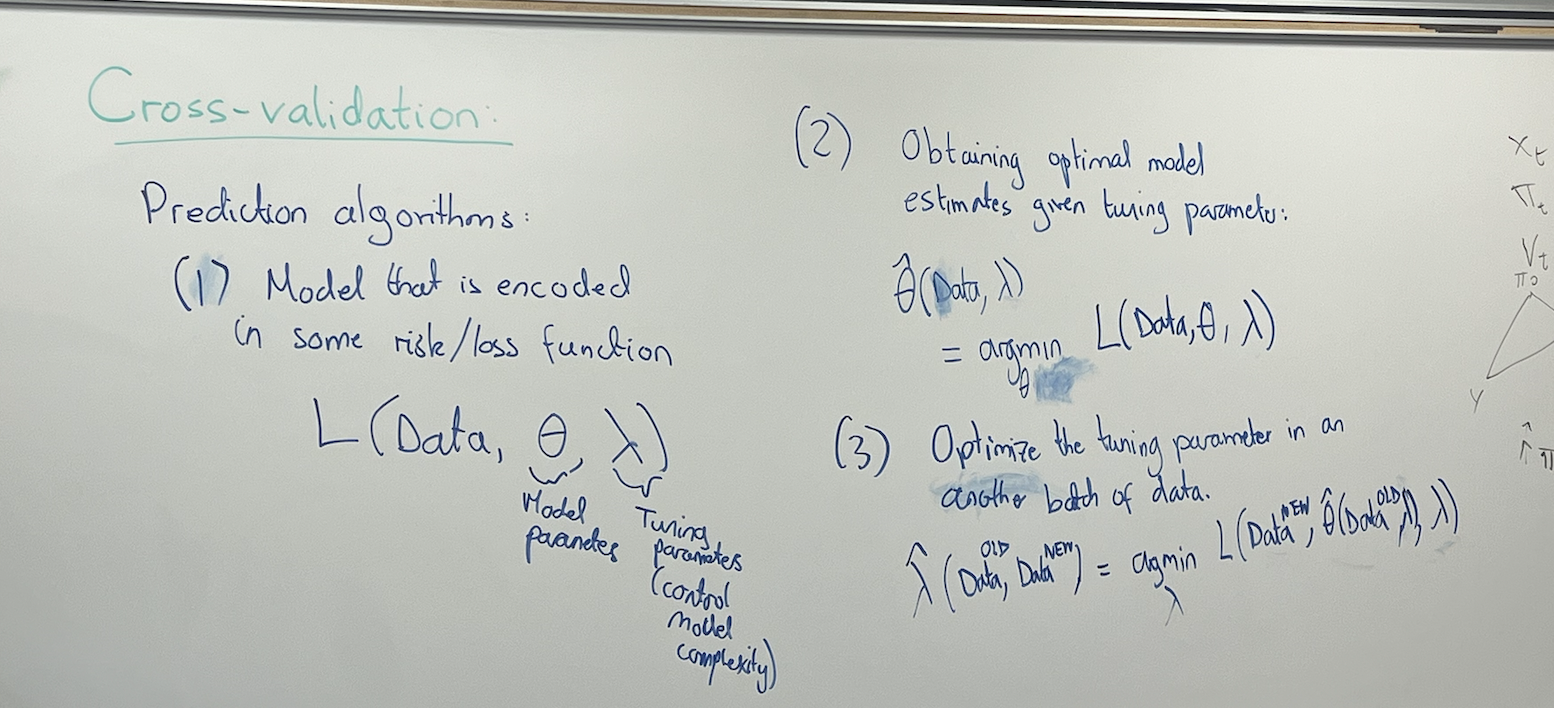 Cross-validation:
Prediction algorithms:
(1) Model that is encoded
in some risk/loss function
L(Data, θ, λ)
Model
parametes
Tuning
parametes
(control
model
complexity)
(2) Obtaining optimal model
estimates given tuning parameter:
θ̂(Data, λ)
= argmin L(Data, θ, λ)
θ
(3) Optimize the tuning parameter in an
another batch of data.
λ̂(Data^OLD, Data^NEW) = argmin L(Data^NEW, θ̂(Data^OLD, λ), λ)
λ
x_t
π_t
V_t
Y